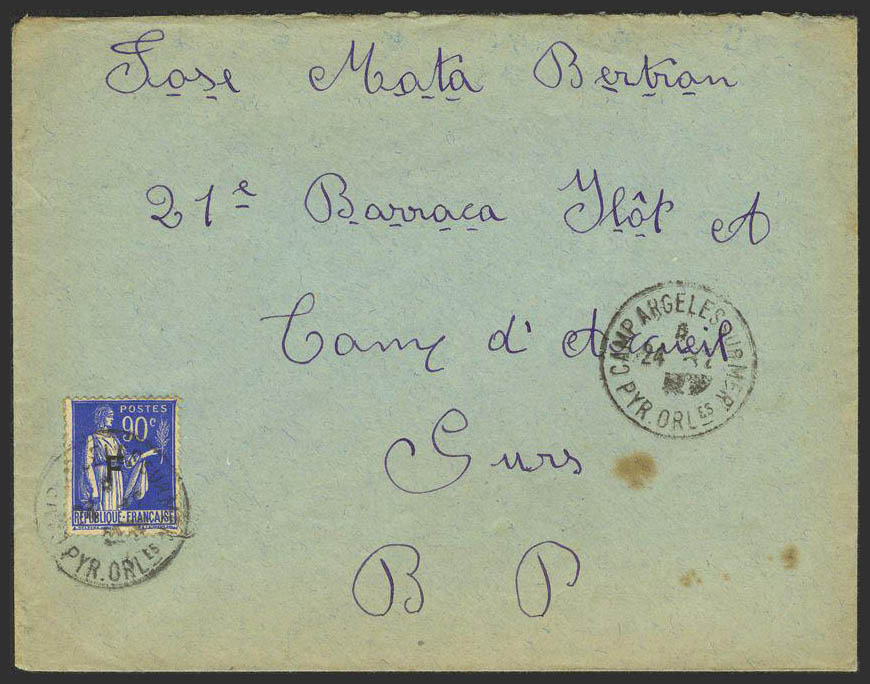 Jose Mata Bertran
21e Barraca Ilôt A
Camp d'Accueil
Gurs
B P
CAMP ARGELES SUR MER
24
PYR. ORLES
POSTES
90c
F
REPUBLIQUE-FRANÇAISE
PYR. ORLES